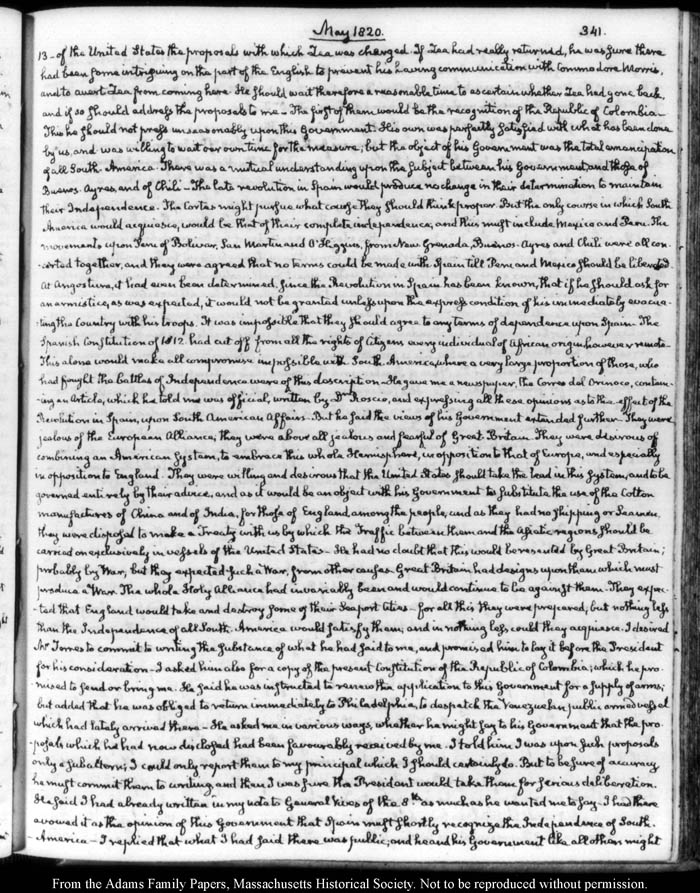 May 1820. 341.
13 - of the United States the proposals with which Zea was charged. If Zea had really returned, he was sure there
had been some intriguing on the part of the English to prevent his having communication with Commodore Morris,
and to avert Zea from coming here. He should wait therefore a reasonable time to ascertain whether Zea had gone back,
and if so should address the proposals to me - The first of them would be the recognition of the Republic of Colombia -
This he should not press unseasonably upon this Government. His own was perfectly satisfied with what has been done
by us, and was willing to wait our own time for the measure; but the object of his Government was the total emancipation
of all South-America. There was a mutual understanding upon the subject between his Government, and those of
Buenos-Ayres, and of Chili - The late revolution in Spain would produce no change in their determination to maintain
their Independence. The Cortes might pursue what course they should think proper. But the only course in which South
America would acquiesce, would be that of their complete independence, and this must include Mexico and Peru. The
movements upon Peru of Bolivar, San Martin and O'Higgins, from New Grenada, Buenos-Ayres and Chili were all con-
-certed together, and they were agreed that no terms could be made with Spain till Peru and Mexico should be liberated.
At Angostura, it had even been determined, since the Revolution in Spain has been known, that if he should ask for
an armistice, as was expected, it would not be granted unless upon the express condition of his immediately evacua-
-ting the Country with his troops. It was impossible that they should agree to any terms of dependence upon Spain. The
Spanish Constitution of 1812 had cut off from all the rights of Citizens every individual of African origin however remote -
This alone would make all compromise impossible with South America, where a very large proportion of those, who
had fought the battles of Independence were of this description - He gave me a newspaper, the Correo del Orinoco, contain-
-ing an Article, which he told me was official, written by Dr. Roscio, and expressing all these opinions as to the effect of the
Revolution in Spain, upon South American Affairs - But he said the views of his Government extended further - They were
jealous of the European Alliance; they were above all jealous and fearful of Great Britain. They were desirous of
combining an American System, to embrace this whole Hemisphere, in opposition to that of Europe, and especially
in opposition to England. They were willing and desirous that the United States should take the lead in this System, and to be
governed entirely by their advice, and as it would be an object with his Government to substitute the use of the Cotton
manufactures of China and of India, for those of England among the people, and as they had no shipping or Seamen,
they were disposed to make a Treaty with us by which the Traffic between them and the Asiatic regions should be
carried on exclusively in vessels of the United States - He had no doubt that this would be resented by Great Britain;
probably by War, but they expected such a War, from other causes. Great Britain had designs upon them which must
produce a War. The whole Holy Alliance had invariably been and would continue to be against them. They expec-
-ted that England would take and destroy some of their Seaport Cities - for all this they were prepared, but nothing less
than the Independence of all South-America would satisfy them, and in nothing less could they acquiesce. I desired
Mr Torres to commit to writing the substance of what he had said to me, and promised him to lay it before the President
for his consideration - I asked him also for a copy of the present Constitution of the Republic of Colombia; which he pro-
-mised to send or bring me. He said he was instructed to renew the application to this Government for a supply of arms;
but added that he was obliged to return immediately to Philadelphia, to despatch the Venezuelan public armed vessel
which had lately arrived there - He asked me in various ways, whether he might say to his Government that the pro-
-posals which he had now disclosed had been favourably received by me. I told him I was upon such proposals
only a subaltern; I could only report them to my principal which I should certainly do. But to be sure of accuracy
he must commit them to writing, and then I was sure the President would take them for serious deliberation.
He said I had already written in my note to General Vives of the 8th as much as he wanted me to say - I had there
avowed it as the opinion of this Government that Spain must shortly recognize the Independence of South.
-America - I replied that what I had said there was public; and he and his Government like all others might
From the Adams Family Papers, Massachusetts Historical Society. Not to be reproduced without permission.